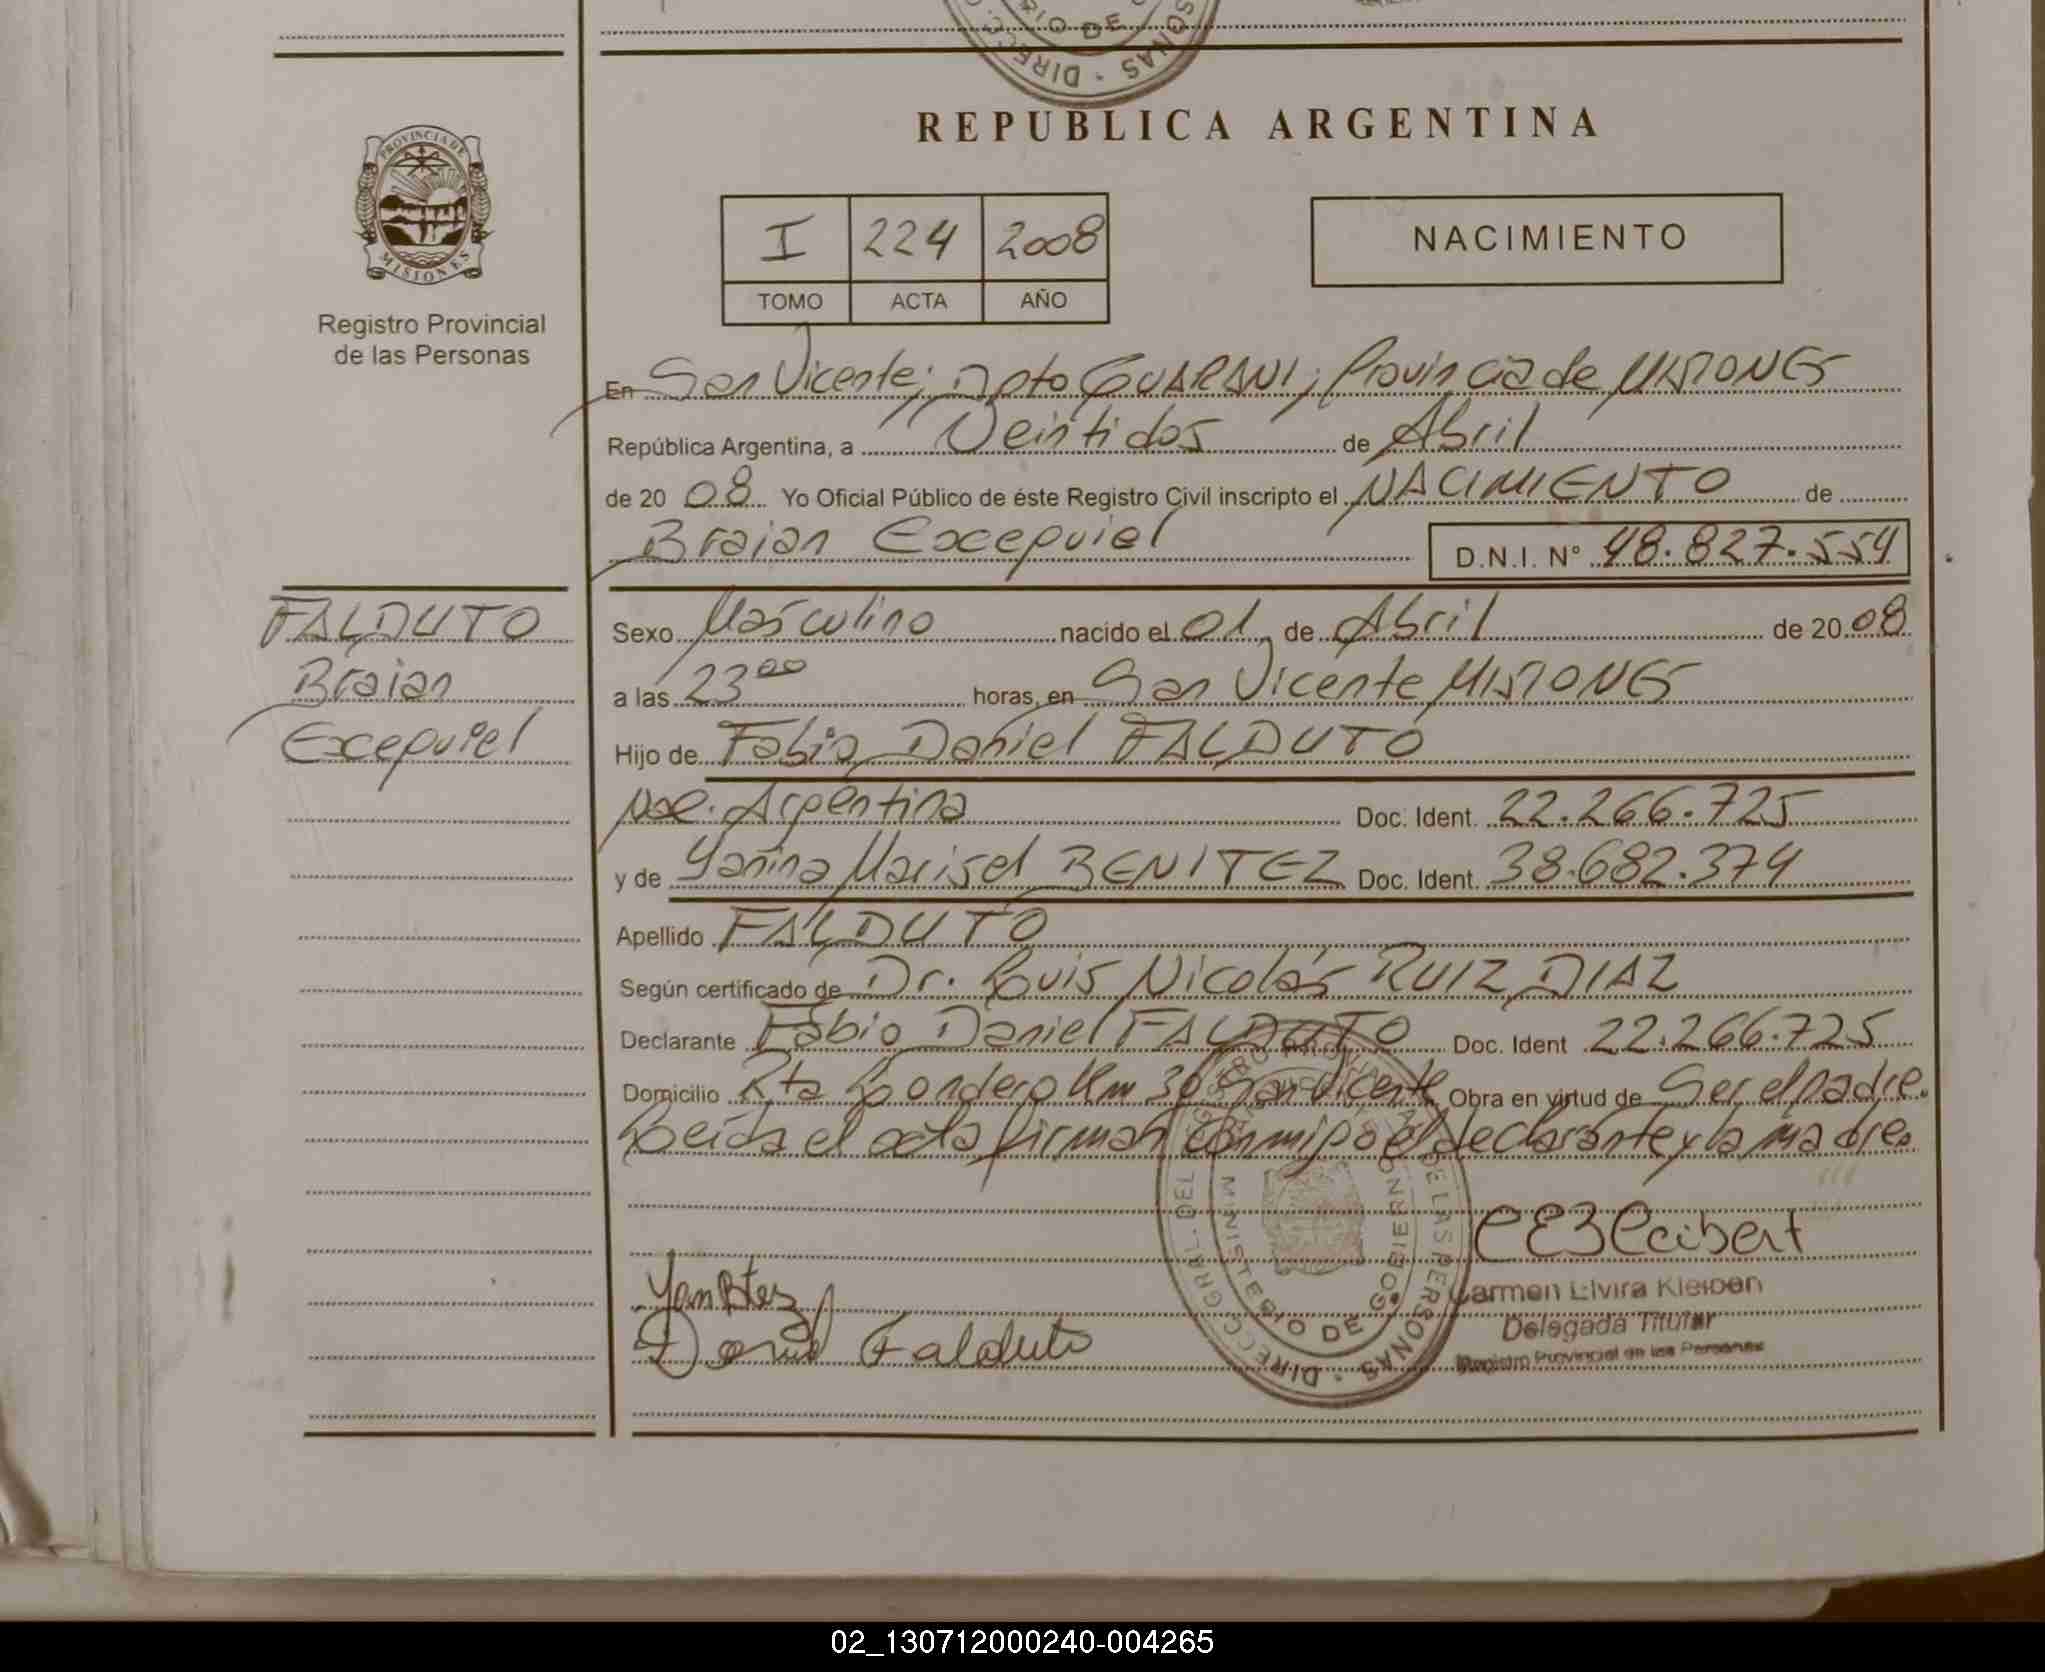 DIRECC. NAS
RIO DE
PROVINCIA DE
MISIONES
Registro Provincial
de las Personas
REPUBLICA ARGENTINA
I 224 2008
TOMO ACTA AÑO
NACIMIENTO
En San Vicente; Dpto GUARANI; Provincia de MISIONES
República Argentina, a Veintidos de Abril
de 20 08 Yo Oficial Público de éste Registro Civil inscripto el NACIMIENTO de
Braian Excequiel D.N.I. N° 48.827.554
FALDUTO
Braian
Excequiel
Sexo Masculino nacido el 01 de Abril de 20 08
a las 23 00 horas, en San Vicente MISIONES
Hijo de Fabio Daniel FALDUTO
Nac. Argentina Doc. Ident. 22.266.725
y de Yanina Marisel BENITEZ Doc. Ident. 38.682.374
Apellido FALDUTO
Según certificado de Dr. Luis Nicolás RUIZ DIAZ
Declarante Fabio Daniel FALDUTO Doc. Ident 22.266.725
Domicilio Rta Londero Km 30 San Vicente Obra en virtud de Ser el padre.
Leída el acta firman conmigo el declarante y la madre.
DIRECC. GRAL. DEL REGISTRO DE LAS PERSONAS
MINISTERIO DE GOBIERNO
Carmen Elvira
Delegada Titular
Registro Provincial de las Personas
Yan Btez
Daniel Falduto
02_130712000240-004265